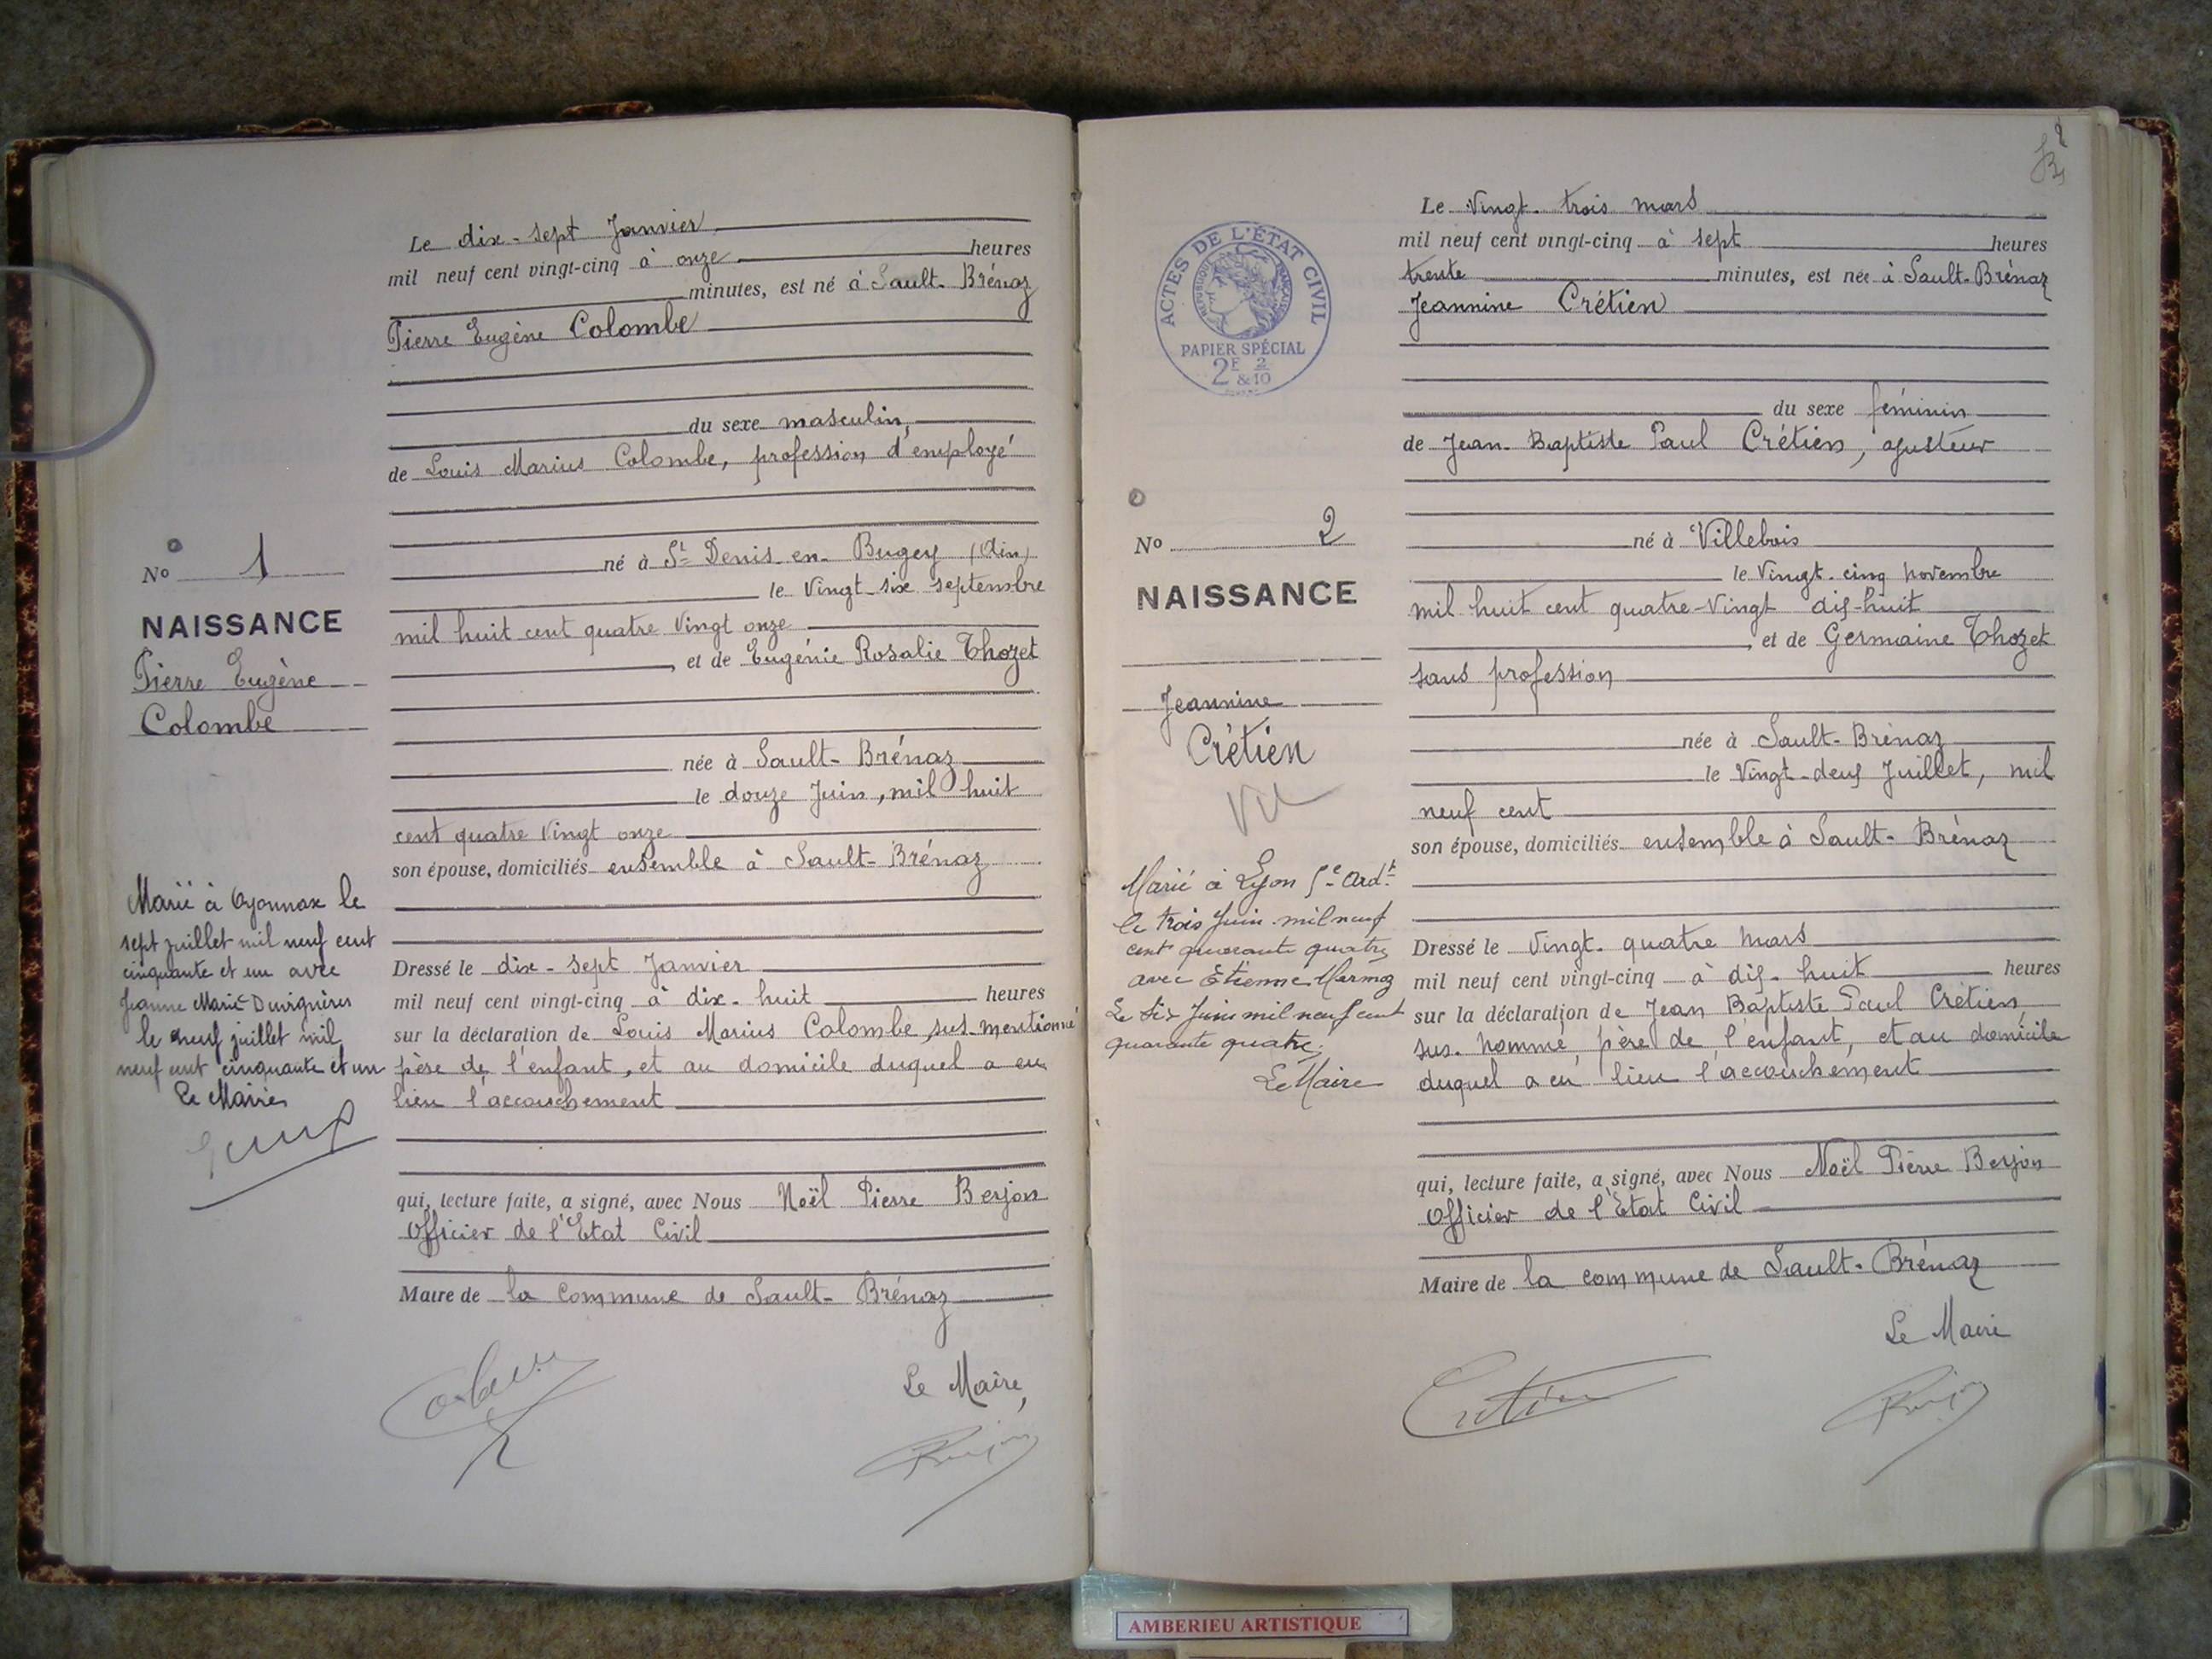 Le dix-sept Janvier
mil neuf cent vingt-cinq à onze heures
minutes, est né à Sault-Brénaz
Pierre Eugène Colombe
du sexe masculin,
de Louis Marius Colombe, profession d'employé
né à St Denis-en-Bugey (Ain)
le vingt-six septembre
mil huit cent quatre vingt onze
, et de Eugénie Rosalie Thozet
née à Sault-Brénaz
le douze Juin, mil huit
cent quatre vingt onze
son épouse, domiciliés ensemble à Sault-Brénaz
Dressé le dix-sept Janvier
mil neuf cent vingt-cinq à dix-huit heures
sur la déclaration de Louis Marius Colombe, sus-mentionné
père de l'enfant, et au domicile duquel a eu
lieu l'accouchement
qui, lecture faite, a signé, avec Nous Noël Pierre Berjon
Officier de l'Etat Civil
Maire de la Commune de Sault-Brénaz
Le Maire,
No 1
NAISSANCE
Pierre Eugène
Colombe
Marié à Oyonnax le
sept juillet mil neuf cent
cinquante et un avec
Jeanne Marie
le neuf juillet mil
neuf cent cinquante et un
Le Maire
ACTES DE L'ÉTAT CIVIL
RÉPUBLIQUE FRANÇAISE
PAPIER SPÉCIAL
2F 2
& 10
No 2
NAISSANCE
Jeannine
Crétien
Vu
Marié à Lyon 5e Ardt
le trois Juin mil neuf
cent quarante quatre
avec Etienne Mermoz
Le six Juin mil neuf cent
quarante quatre.
Le Maire
Le vingt-trois mars
mil neuf cent vingt-cinq à sept heures
trente minutes, est née à Sault-Brénaz
Jeannine Crétien
du sexe féminin
de Jean-Baptiste Paul Crétien, ajusteur
né à Villebois
le vingt-cinq novembre
mil huit cent quatre-vingt dix-huit
, et de Germaine Thozet
sans profession
née à Sault-Brénaz
le vingt-deux Juillet, mil
neuf cent
son épouse, domiciliés ensemble à Sault-Brénaz
Dressé le vingt-quatre mars
mil neuf cent vingt-cinq à dix-huit heures
sur la déclaration de Jean Baptiste Paul Crétien,
sus-nommé, père de l'enfant, et au domicile
duquel a eu lieu l'accouchement
qui, lecture faite, a signé, avec Nous Noël Pierre Berjon
Officier de l'Etat Civil
Maire de la commune de Sault-Brénaz
Le Maire
Crétien
AMBERIEU ARTISTIQUE